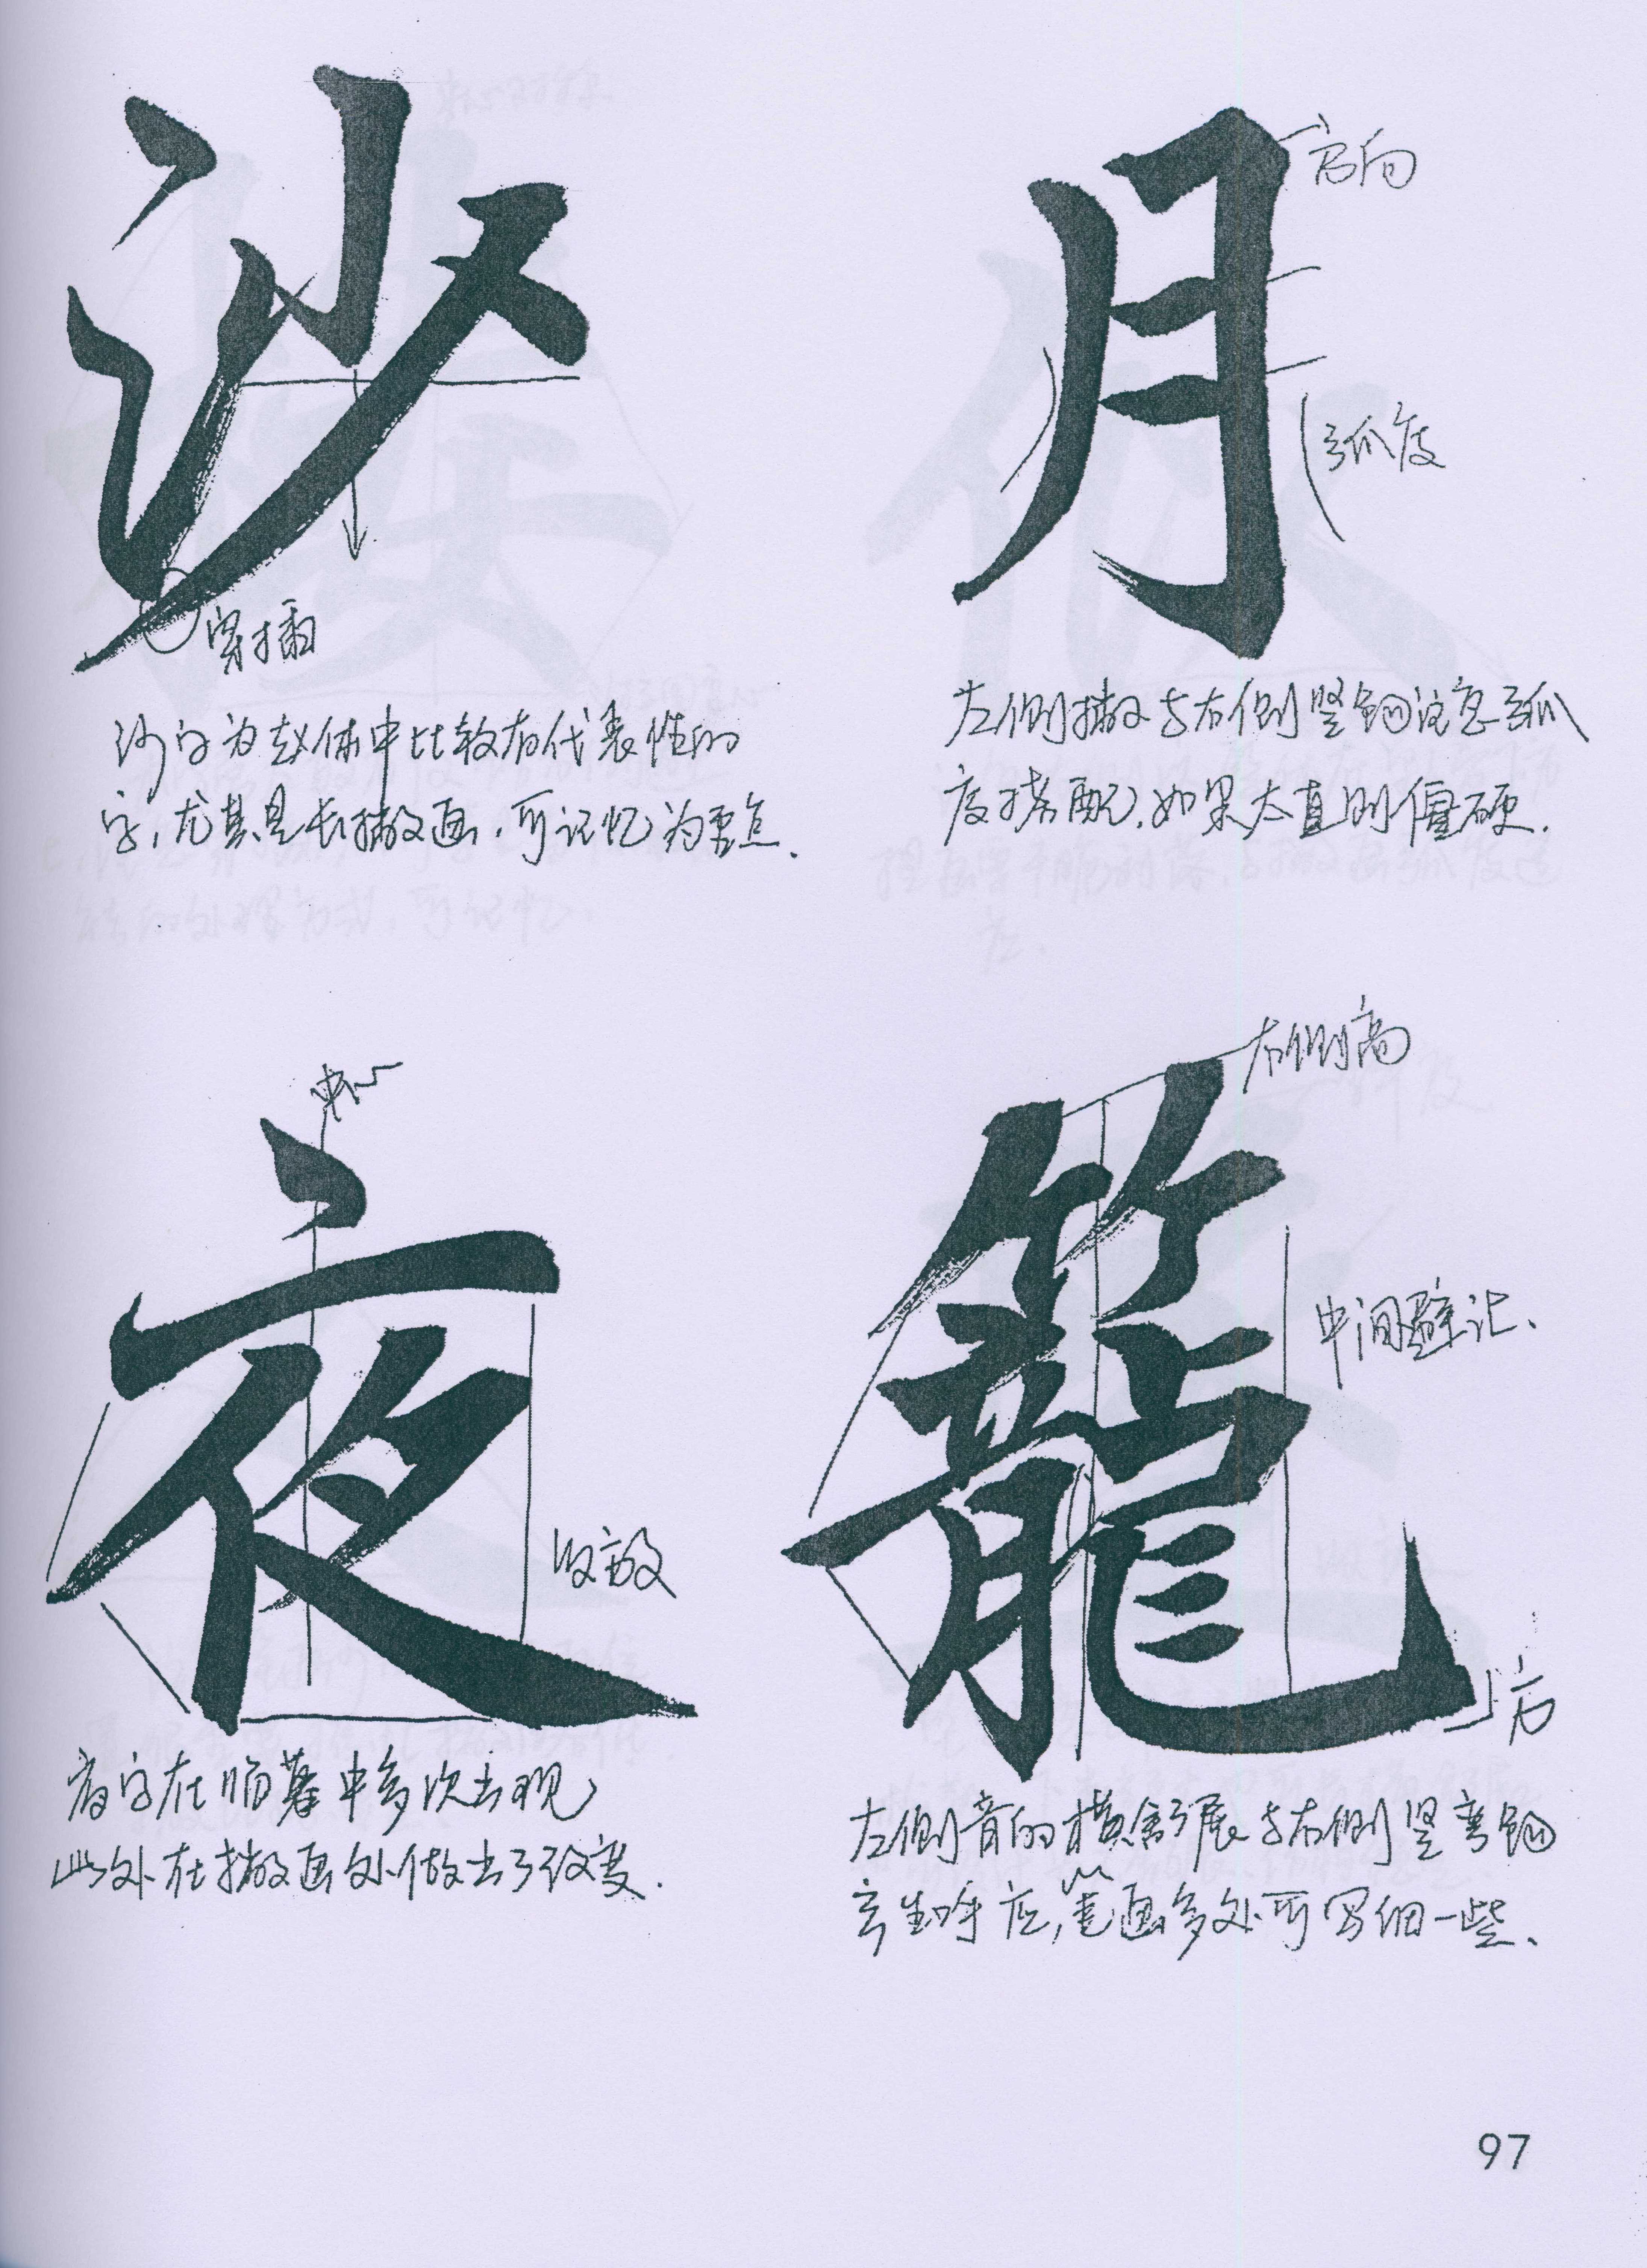 沙
穿插
沙字为赵体中比较有代表性的
字,尤其是长撇画,可记忆为重点.
月
方向
弧度
左侧撇与右侧竖钩注意弧
度搭配,如果太直则僵硬.
夜
中心
收放
夜字在临摹中多次出现
此处在撇画处做出了改变.
籠
右侧高
中间避让、
方
左侧音的横舒展与右侧竖弯钩
产生呼应,笔画多处可写细一些、
97